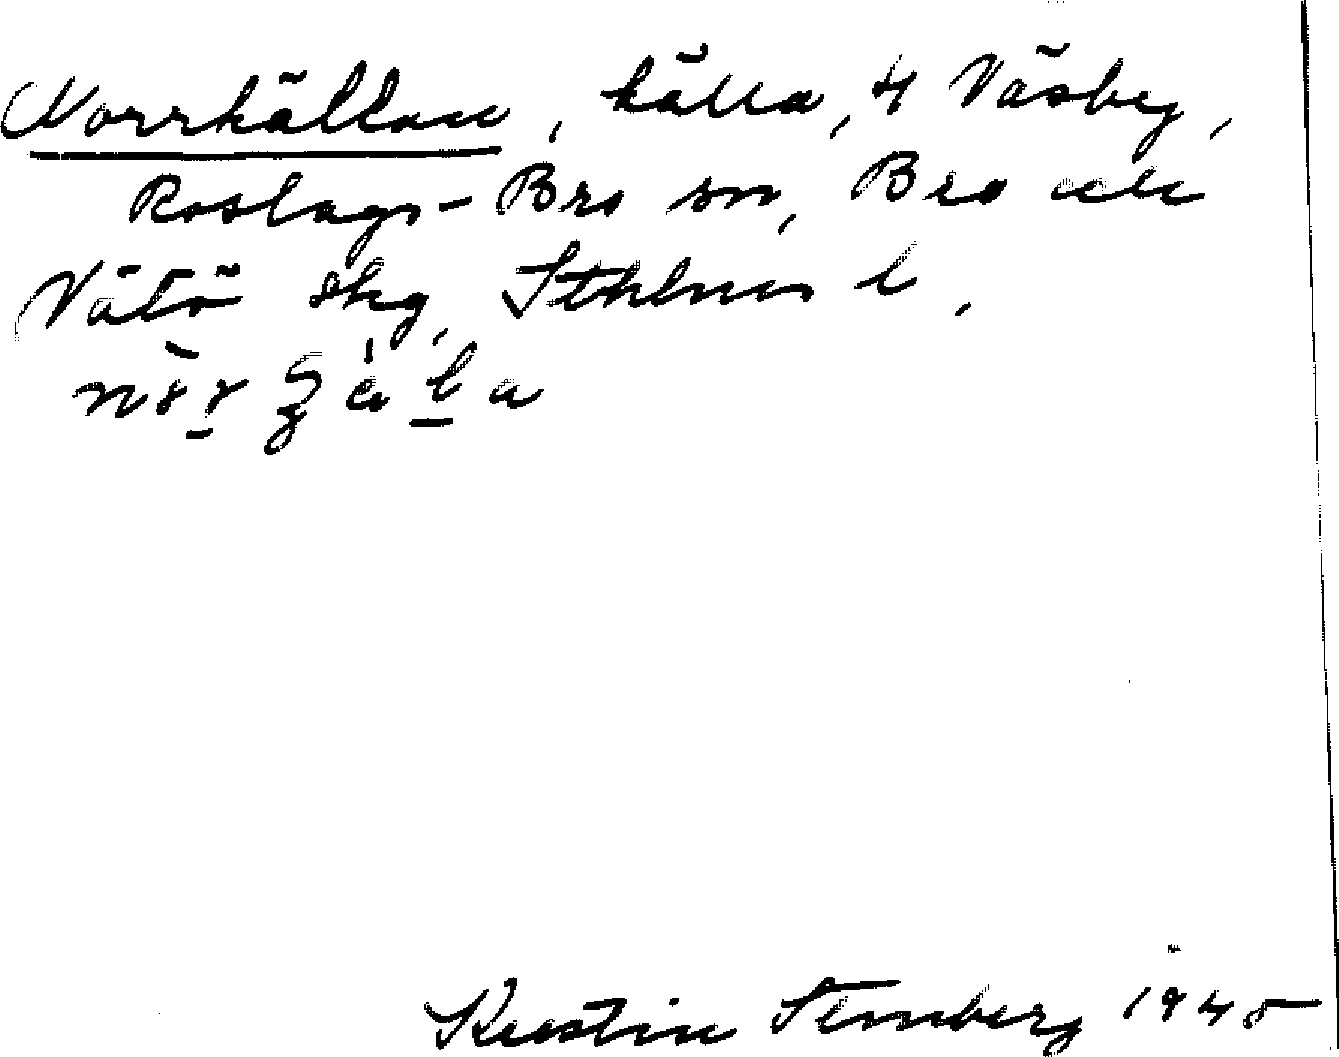 Norrkällan, källa, 4 Väsby,
Roslags-Bro sn, Bro och
Vätö skg, Sthlms l.
Kerstin Sternberg 1945